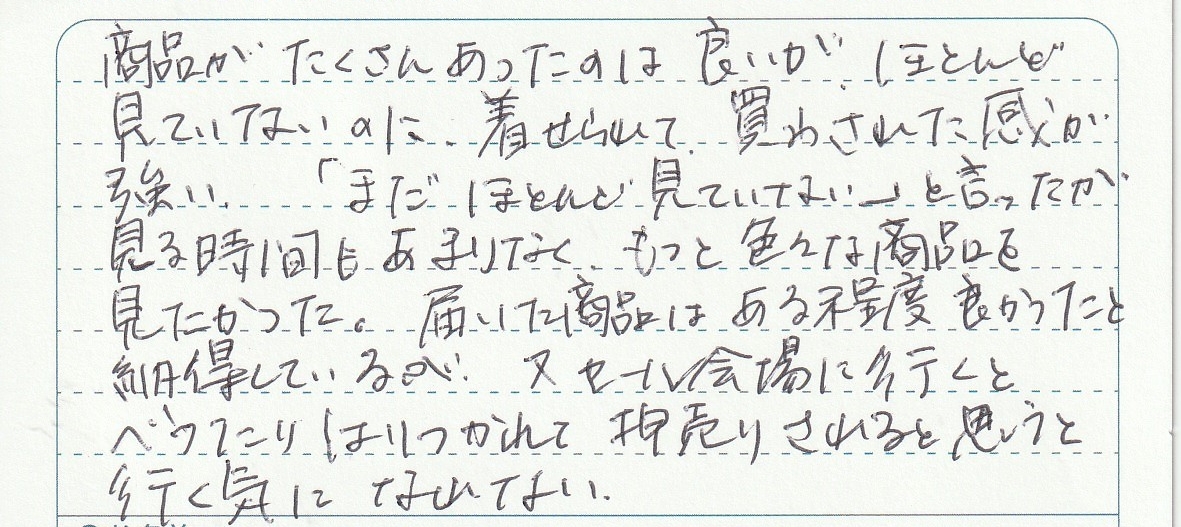 商品がたくさんあったのは良いが、ほとんど
見ていてないのに、着せられて、買わされた感が
強い、「まだほとんど見ていない」と言ったが
見る時間もあまりなく、もっと色々な商品を
見たかった。届いた商品はある程度良かったと
納得しているが、又セール会場に行くと
ベッタリはりつかれて押売りされると思うと
行く気になれない。